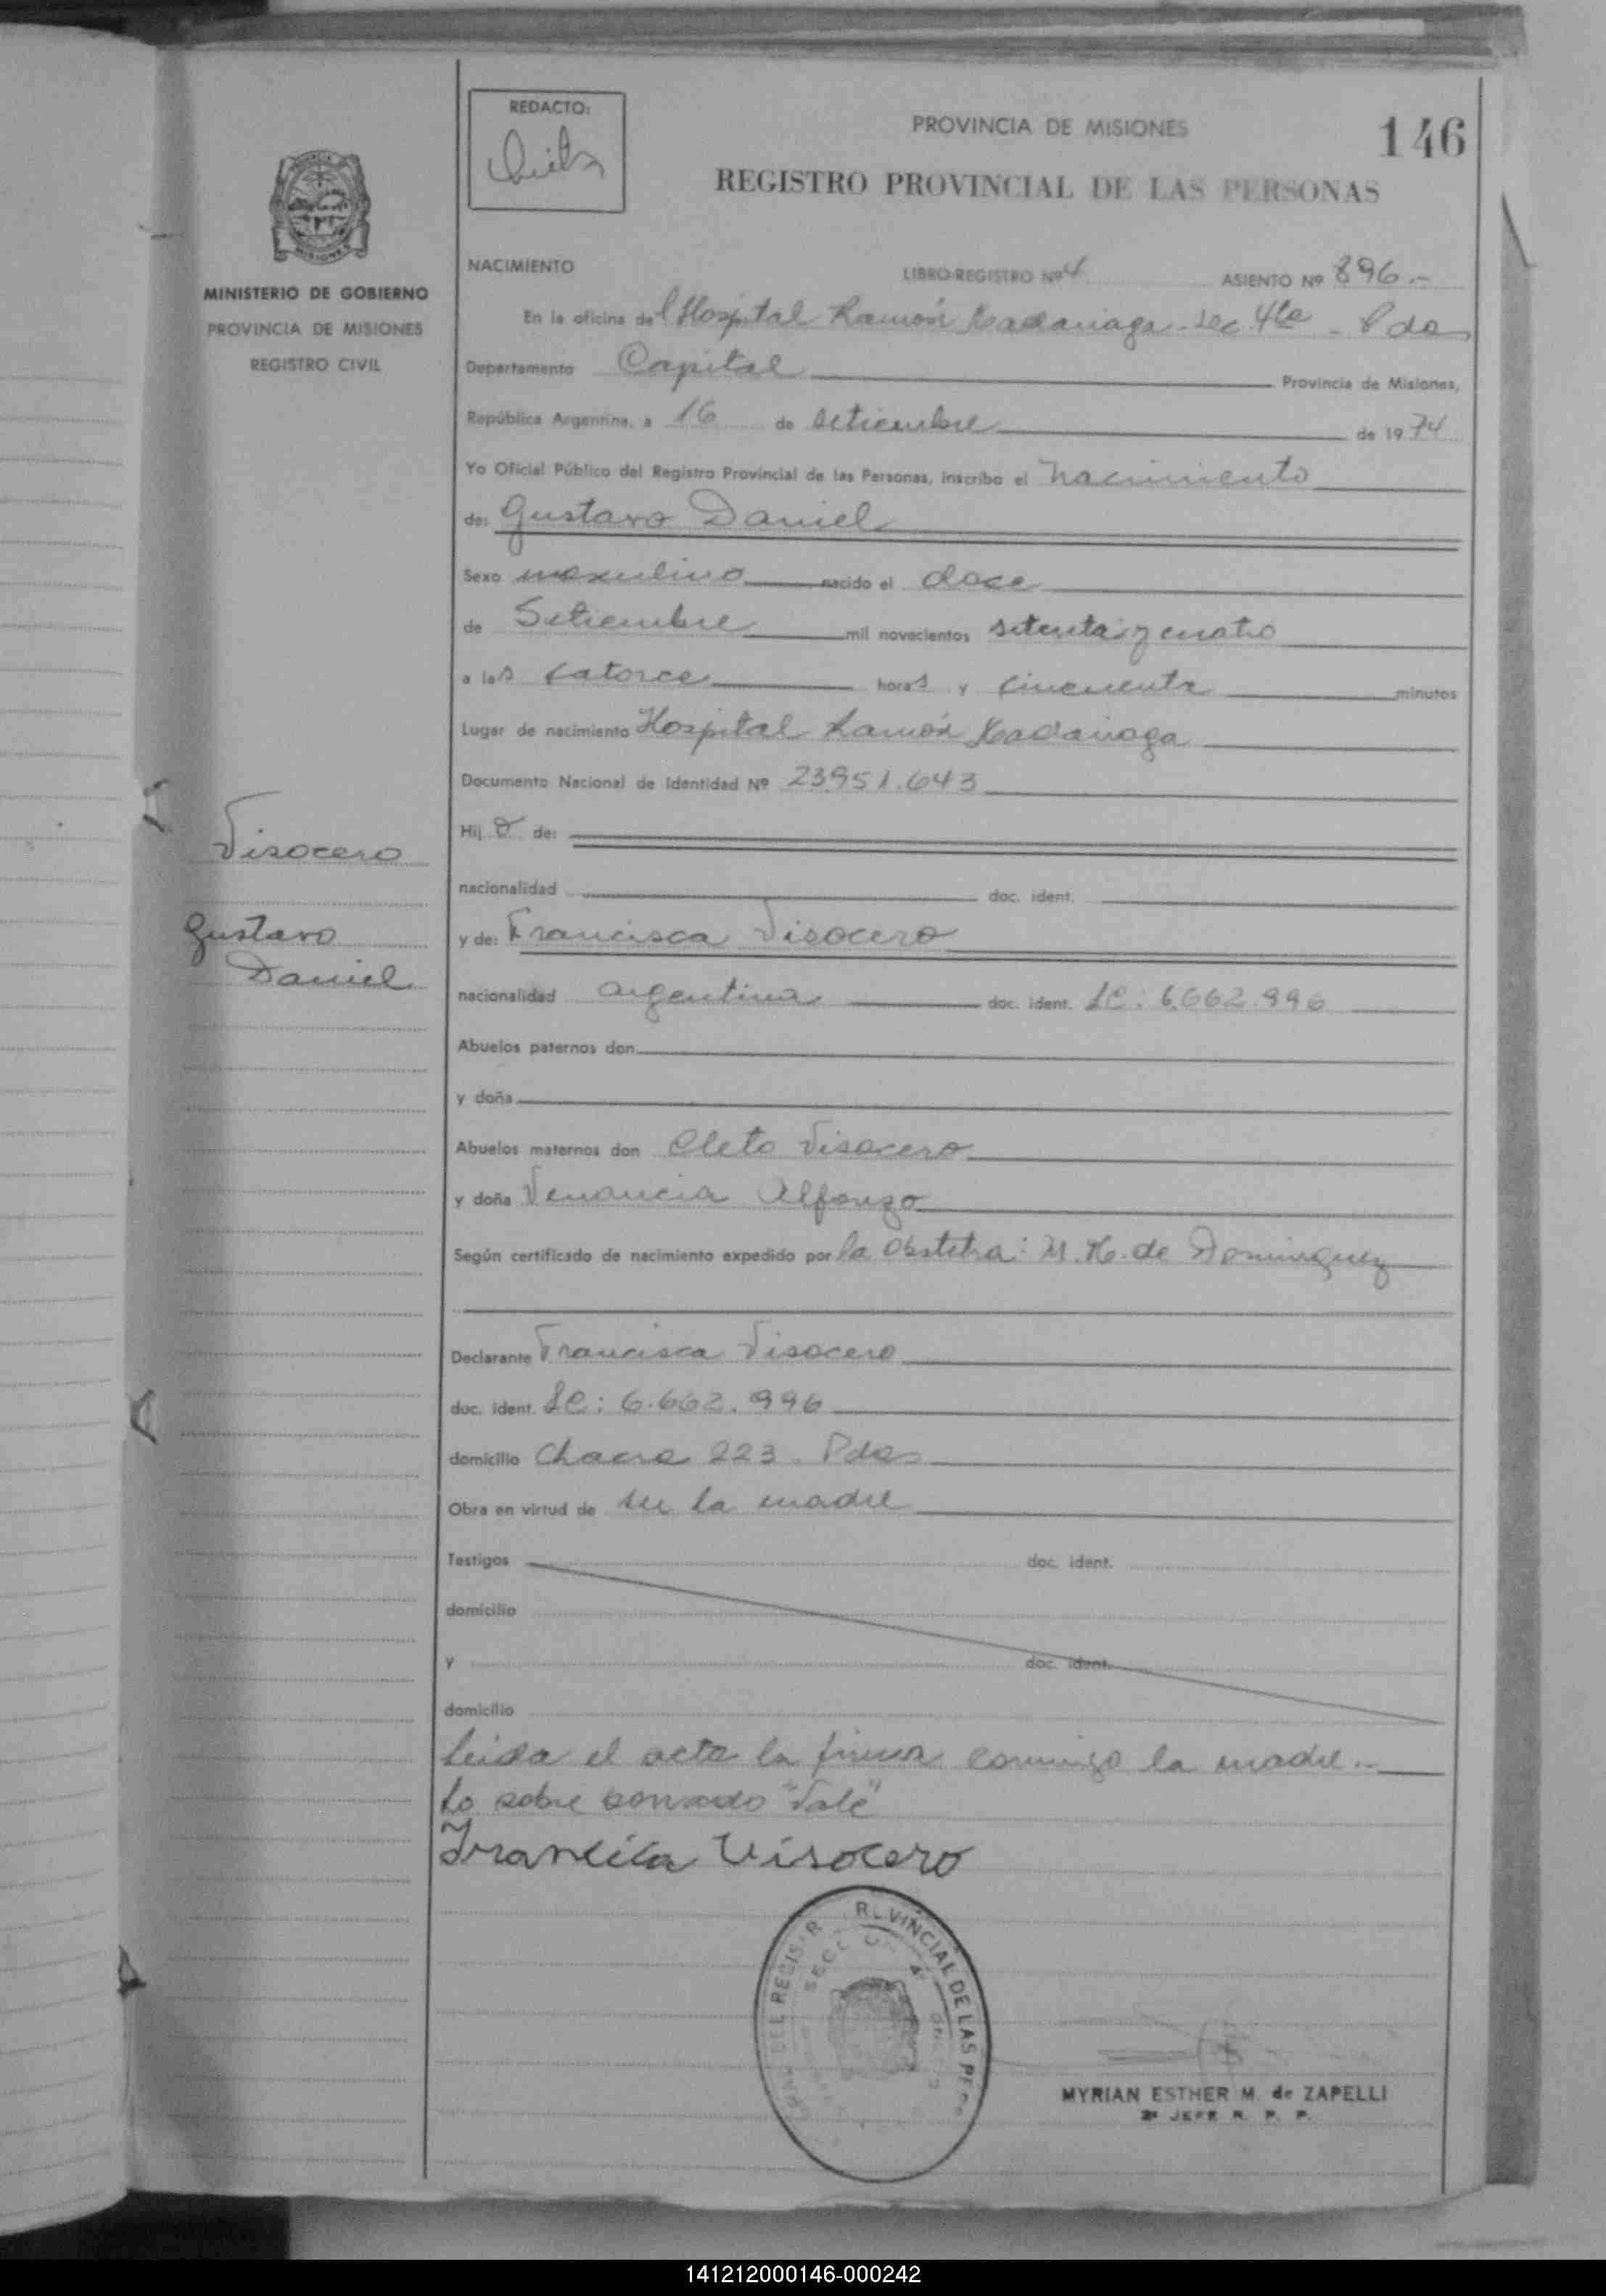 REDACTO:
PROVINCIA DE MISIONES
146
REGISTRO PROVINCIAL DE LAS PERSONAS
MISIONES
MINISTERIO DE GOBIERNO
PROVINCIA DE MISIONES
REGISTRO CIVIL
NACIMIENTO LIBRO-REGISTRO Nº 4 ASIENTO Nº 896.-
En la oficina del Hospital Ramón Madariaga - Sec. 4ta - Pdas
Departamento Capital Provincia de Misiones,
República Argentina, a 16 de Setiembre de 1974
Yo Oficial Público del Registro Provincial de las Personas, inscribo el nacimiento
de: Gustavo Daniel
Sexo masculino nacido el doce
de Setiembre mil novecientos setenta y cuatro
a las catorce horas y cincuenta minutos
Lugar de nacimiento Hospital Ramón Madariaga
Documento Nacional de Identidad Nº 23.951.643
Hijo de:
nacionalidad doc. ident.
y de: Francisca Visocero
nacionalidad argentina doc. ident. LC: 6.662.996
Abuelos paternos don
y doña
Abuelos maternos don Cleto Visocero
y doña Venancia Alfonzo
Según certificado de nacimiento expedido por la Obstetra: M. H. de Dominguez
Declarante Francisca Visocero
doc. ident. LC: 6.662.996
domicilio Chacra 223. Pdas
Obra en virtud de ser la madre
Testigos doc. ident.
domicilio
y doc. ident.
domicilio
Leida el acta la firma conmigo la madre..
Lo sobre borrado "Vale"
Francisca Visocero
Visocero
Gustavo
Daniel
DEL REGISTR VINCIAL DE LAS PER
MYRIAN ESTHER M. de ZAPELLI
2º JEFE R. P. P.
141212000146-000242